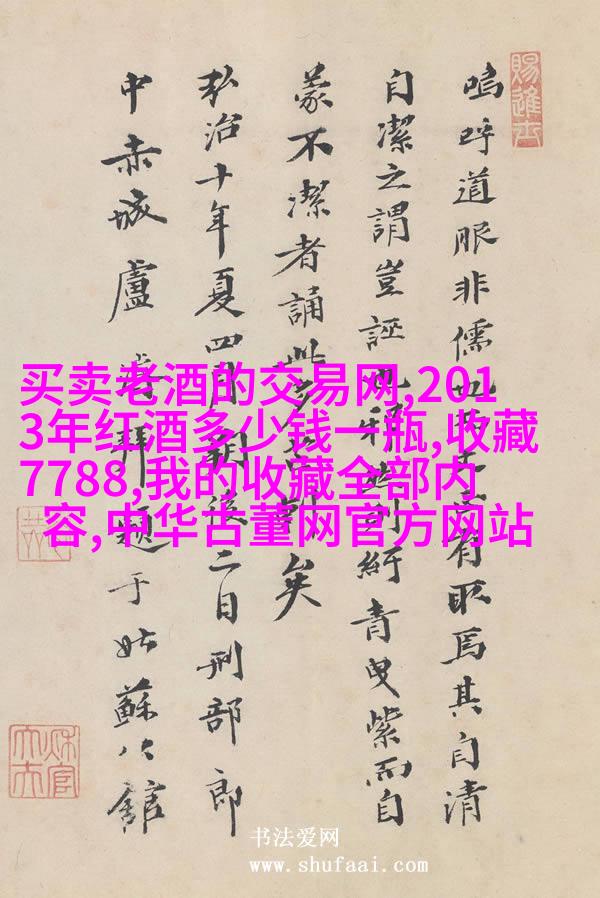 賜進士
嗚呼道服非儒也有取焉其自清
自潔之謂豈誣紆青曳紫而自
蒙不潔者誦此矣
弘治十年夏四月朔後二日刑部郎
中赤城盧拜題于姑蘇公館
买卖老酒的交易网,201
3年红酒多少钱一瓶,收藏
7788,我的收藏全部内
容,中华古董网官方网站
书法爱网
www.shufaai.com